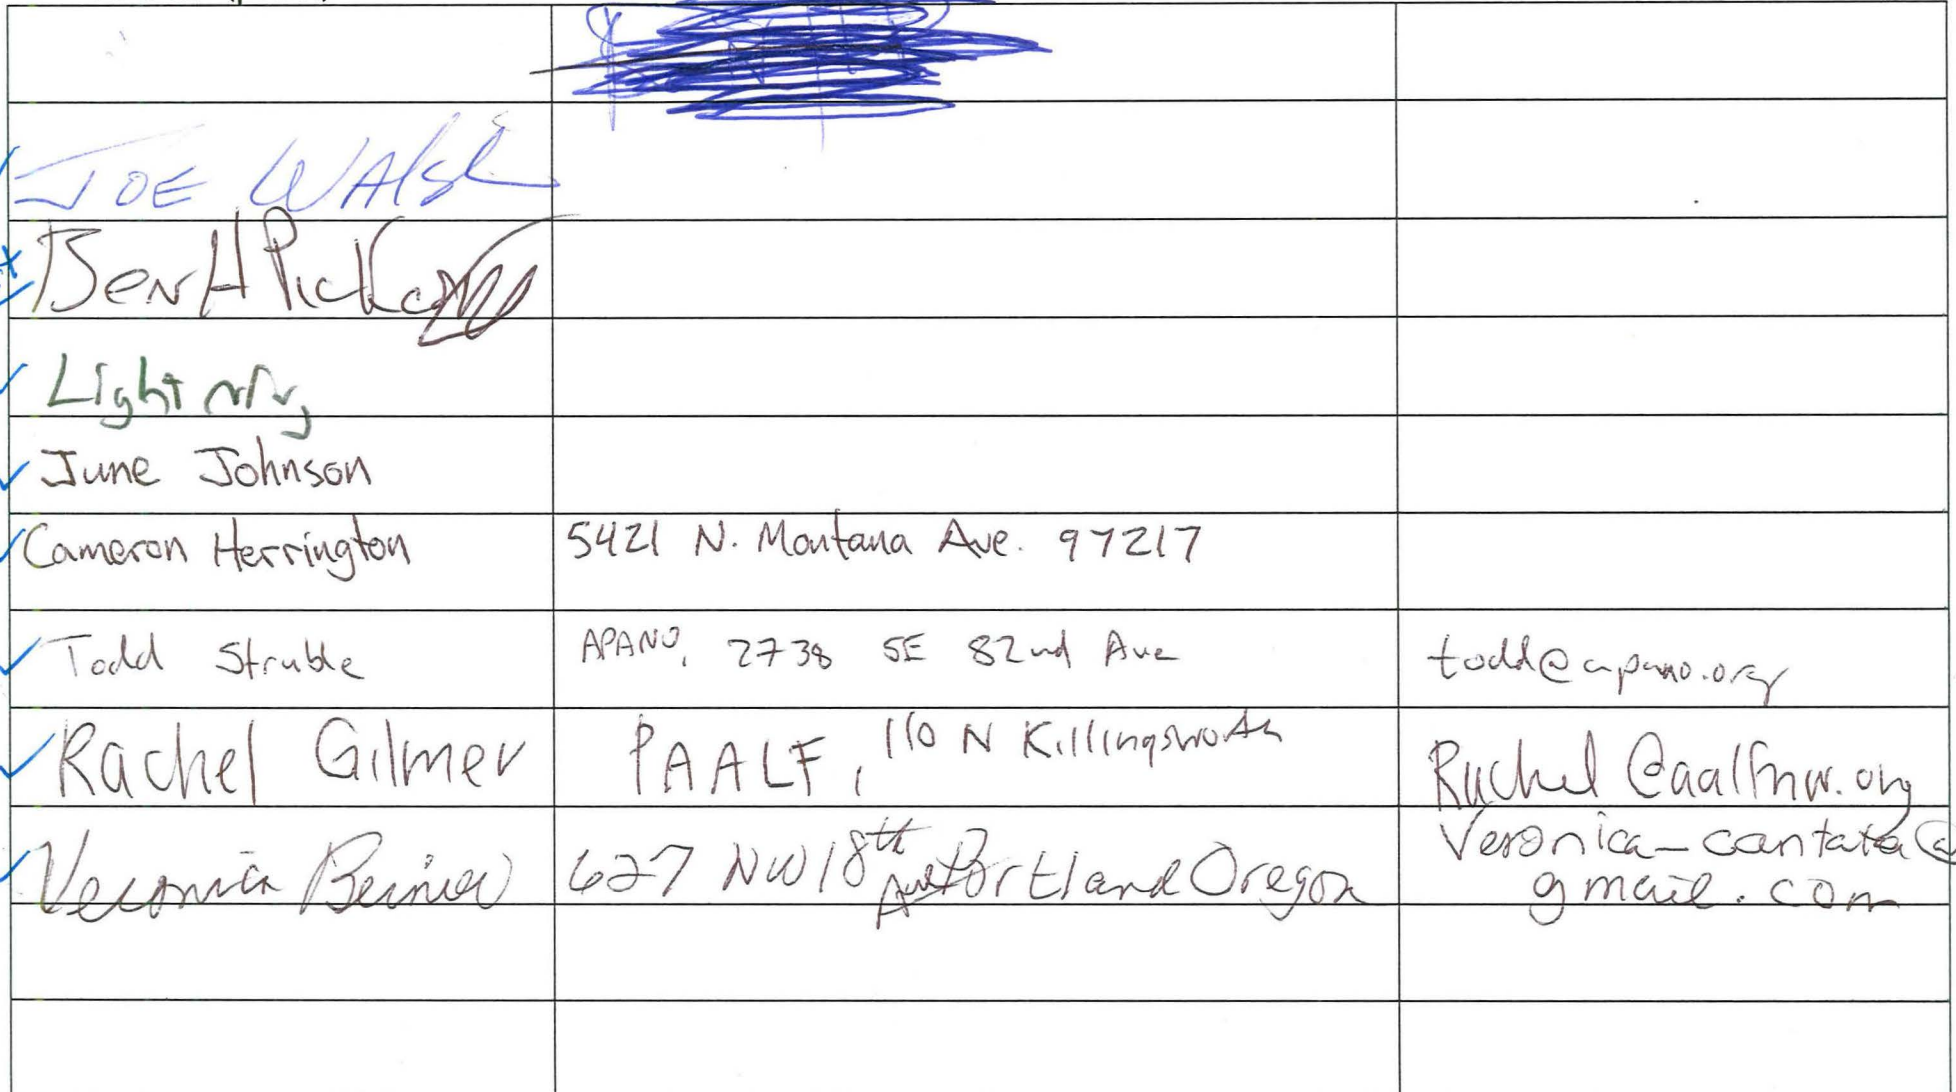 JOE WALSh
Ben H Pick
Lightning
June Johnson
Cameron Herrington 5421 N. Montana Ave. 97217
Todd Struble APANO, 2738 SE 82nd Ave todd@apano.org
Rachel Gilmer PAALF, 110 N Killingsworth Rachel@aalfnw.org
Veronica Bernier 627 NW 18th Ave Portland Oregon Veronica-cantata@
gmail.com